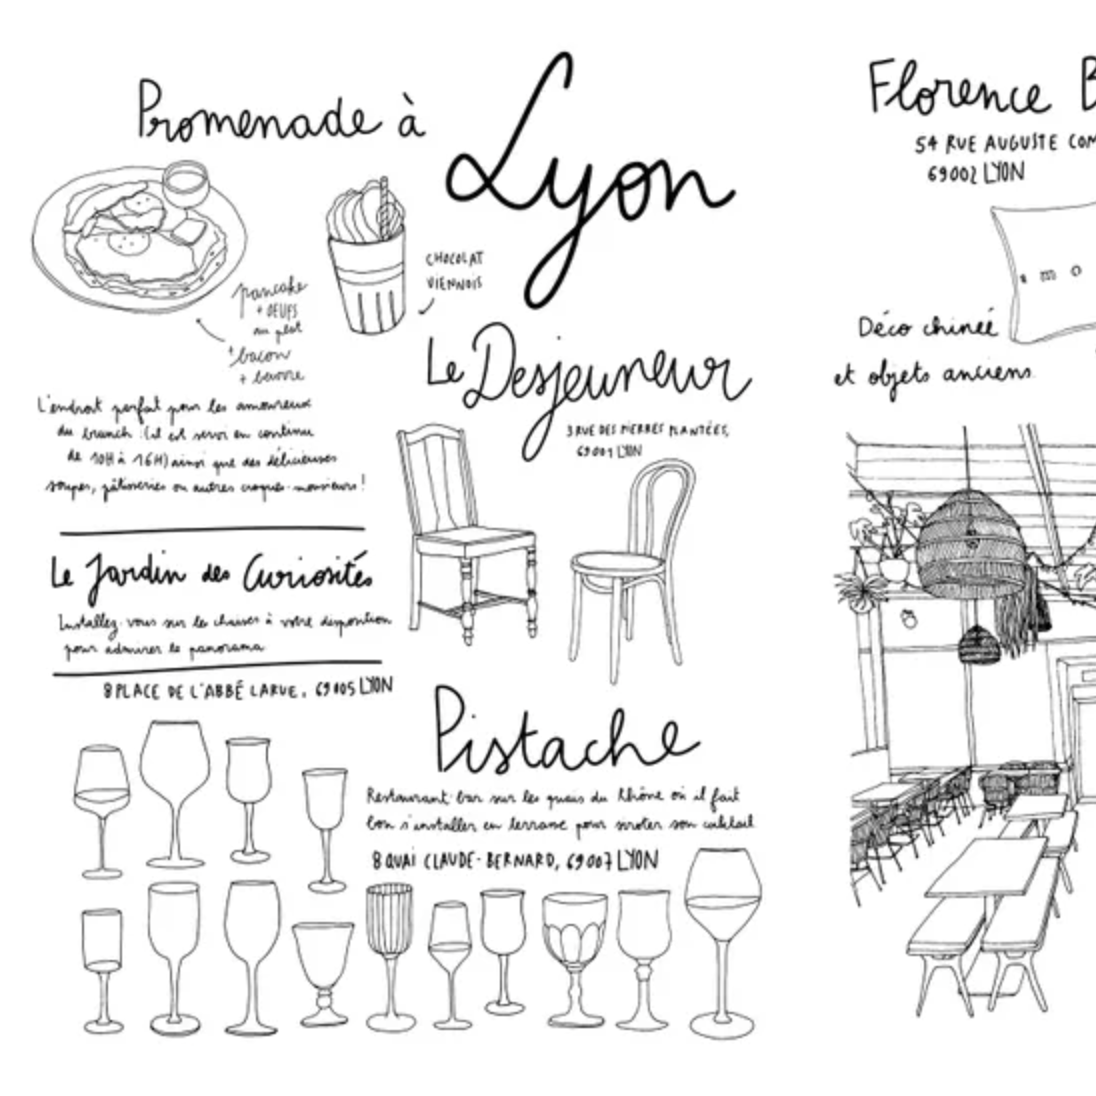 Promenade à
Lyon
CHOCOLAT
VIENNOIS
pancake
+ OEUFS
au plat
+ bacon
+ beurre
Le Desjeuneur
3 RUE DES PIERRES PLANTÉES,
69001 LYON
L'endroit parfait pour les amoureux
du brunch (il est servi en continu
de 10H à 16H) ainsi que des délicieuses
soupes, pâtisseries ou autres croques-monsieurs !
Le Jardin des Curiosités
Installez-vous sur les chaises à votre disposition
pour admirer le panorama
8 PLACE DE L'ABBÉ LARUE, 69005 LYON
Pistache
Restaurant-bar sur les quais du Rhône où il fait
bon s'installer en terrasse pour siroter son cocktail
8 QUAI CLAUDE-BERNARD, 69007 LYON
Florence B
54 RUE AUGUSTE COM
69002 LYON
Déco chinée
et objets anciens